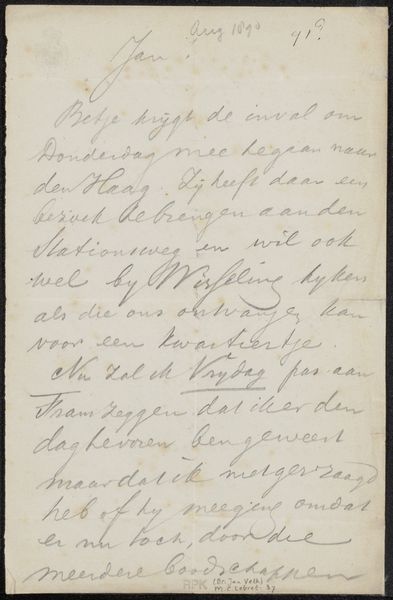 Aug 1890
91?
Jan!
Betje krygt de inval om
Donderdag mee te gaan naar
den Haag. Zy heeft daar een
bezoek te brengen aan den
Stationsweg en wil ook
wel by Wisseling kyken
als die ons ontvangen kan
voor een kwartiertje.
Nu zal ik Vrydag pas aan
Fram zeggen dat ik er den
dag te voren ben geweest
maar dat ik niet gevraagd
heb of hy meeging omdat
er nu toch, door die
meerdere boodschappen
RPK
(Dr. Jan Veth)
M.C. Lebret. 37